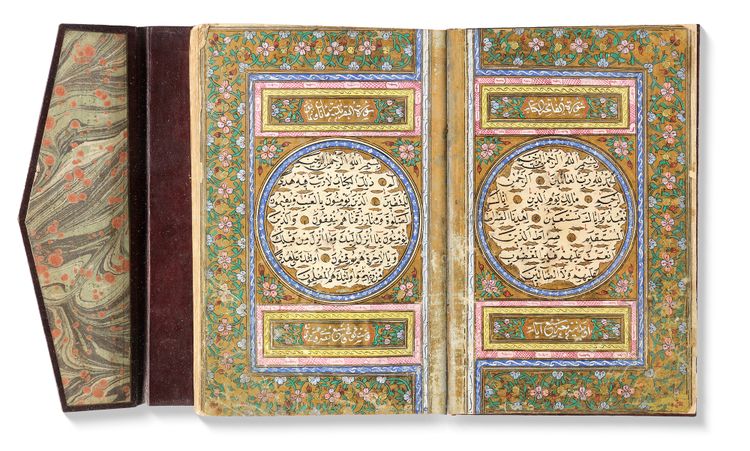 سورة الفاتحة الكتاب
بسم الله الرحمن الرحيم
الحمد لله رب العالمين الرحمن
الرحيم مالك يوم الدين اياك
نعبد واياك نستعين اهدنا الصراط
المستقيم صراط الذين
انعمت عليهم غير المغضوب
عليهم ولا الضالين
سورة البقرة
بسم الله الرحمن الرحيم
الم ذلك الكتاب لا ريب فيه هدى
للمتقين الذين يؤمنون بالغيب ويقيمون
الصلوة ومما رزقناهم ينفقون والذين
يؤمنون بما انزل اليك وما انزل من قبلك
وبالاخرة هم يوقنون اولئك على هدى
من ربهم واولئك هم المفلحون